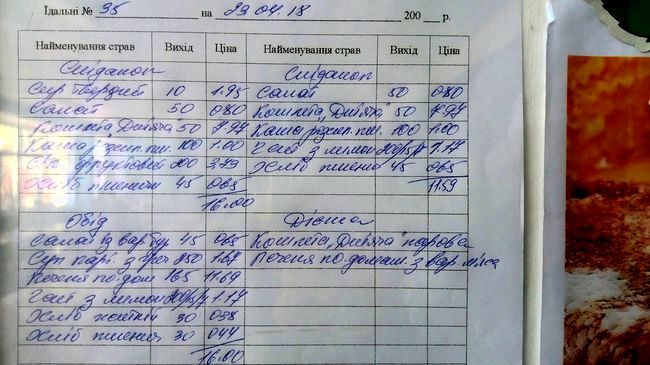 Їдальні № 35 на 23.04.18 200 р.
Найменування страв Вихід Ціна Найменування страв Вихід Ціна
Сніданок Сніданок
Сир твердий 10 1.95 Салат 50 080
Салат 50 080 Котлета „Дитяча" 50 7.97
Котлета „Дитяча" 50 7.97 Каша розсип. пш. 100 1.00
Каша розсип. пш. 100 1.00 Чай з лимон 1.17
Сік фруктовий 200 Хліб пшенич 45 065
Хліб пшенич 45 065 11.59
16.00
Обід Дієта
Салат із вар бур 45 065 Котлета „Дитяча" парова
Суп карт. з 250 1.67 Печеня по домаш. з вар. м'яса
Печеня по дом 165 11.69
Чай з лимон 1.17
Хліб житній 30 038
Хліб пшенич 30 044
16.00